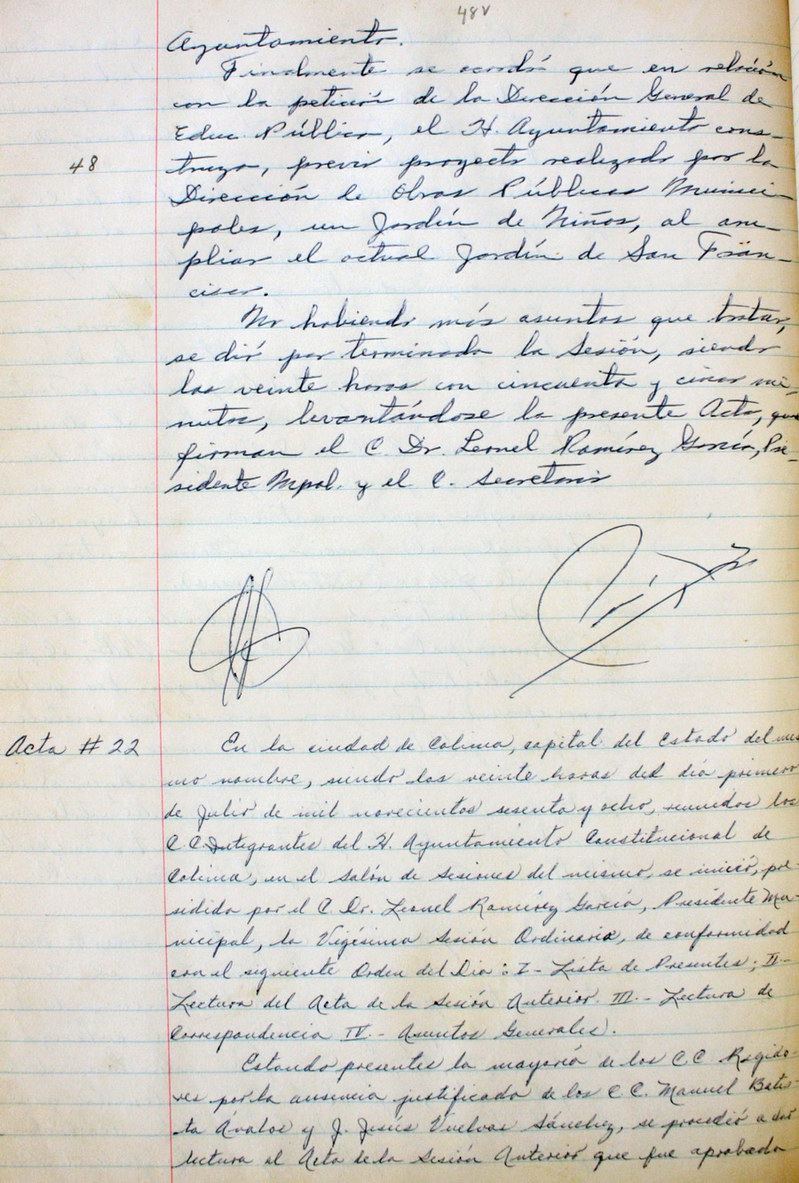 48v
Ayuntamiento.
Finalmente se acordó que en relación
con la petición de la Dirección General de
Educ Pública, el H. Ayuntamiento cons-
truya, previo proyecto realizado por la
48
Dirección de Obras Públicas Munici-
pales, un Jardín de Niños, al am-
pliar el actual Jardín de San Fran-
cisco.
No habiendo más asuntos que tratar,
se dió por terminada la Sesión, siendo
las veinte horas con cincuenta y cinco mi-
nutos, levantándose la presente Acta, que
firman el C. Dr. Leonel Ramírez García, Pre-
sidente Mpal. y el C. Secretario
Acta # 22
En la ciudad de Colima, capital del Estado del mis
mo nombre, siendo las veinte horas del día primero
de Julio de mil novecientos sesenta y ocho, reunidos los
C C Integrantes del H. Ayuntamiento Constitucional de
Colima, en el Salón de Sesiones del mismo, se inició, pre-
sidida por el C Dr. Leonel Ramírez García, Presidente Mu-
nicipal, la Vigésima Sesión Ordinaria, de conformidad
con el siguiente Orden del Día: I- Lista de Presentes; II-
Lectura del Acta de la Sesión Anterior. III.- Lectura de
Correspondencia IV.- Asuntos Generales).
Estando presentes la mayoría de los C C Regido-
res por la ausencia justificada de los C C. Manuel Batis-
ta Ávalos y J. Jesús Vuelvas Sánchez, se procedió a dar
lectura al Acta de la Sesión Anterior que fue aprobada